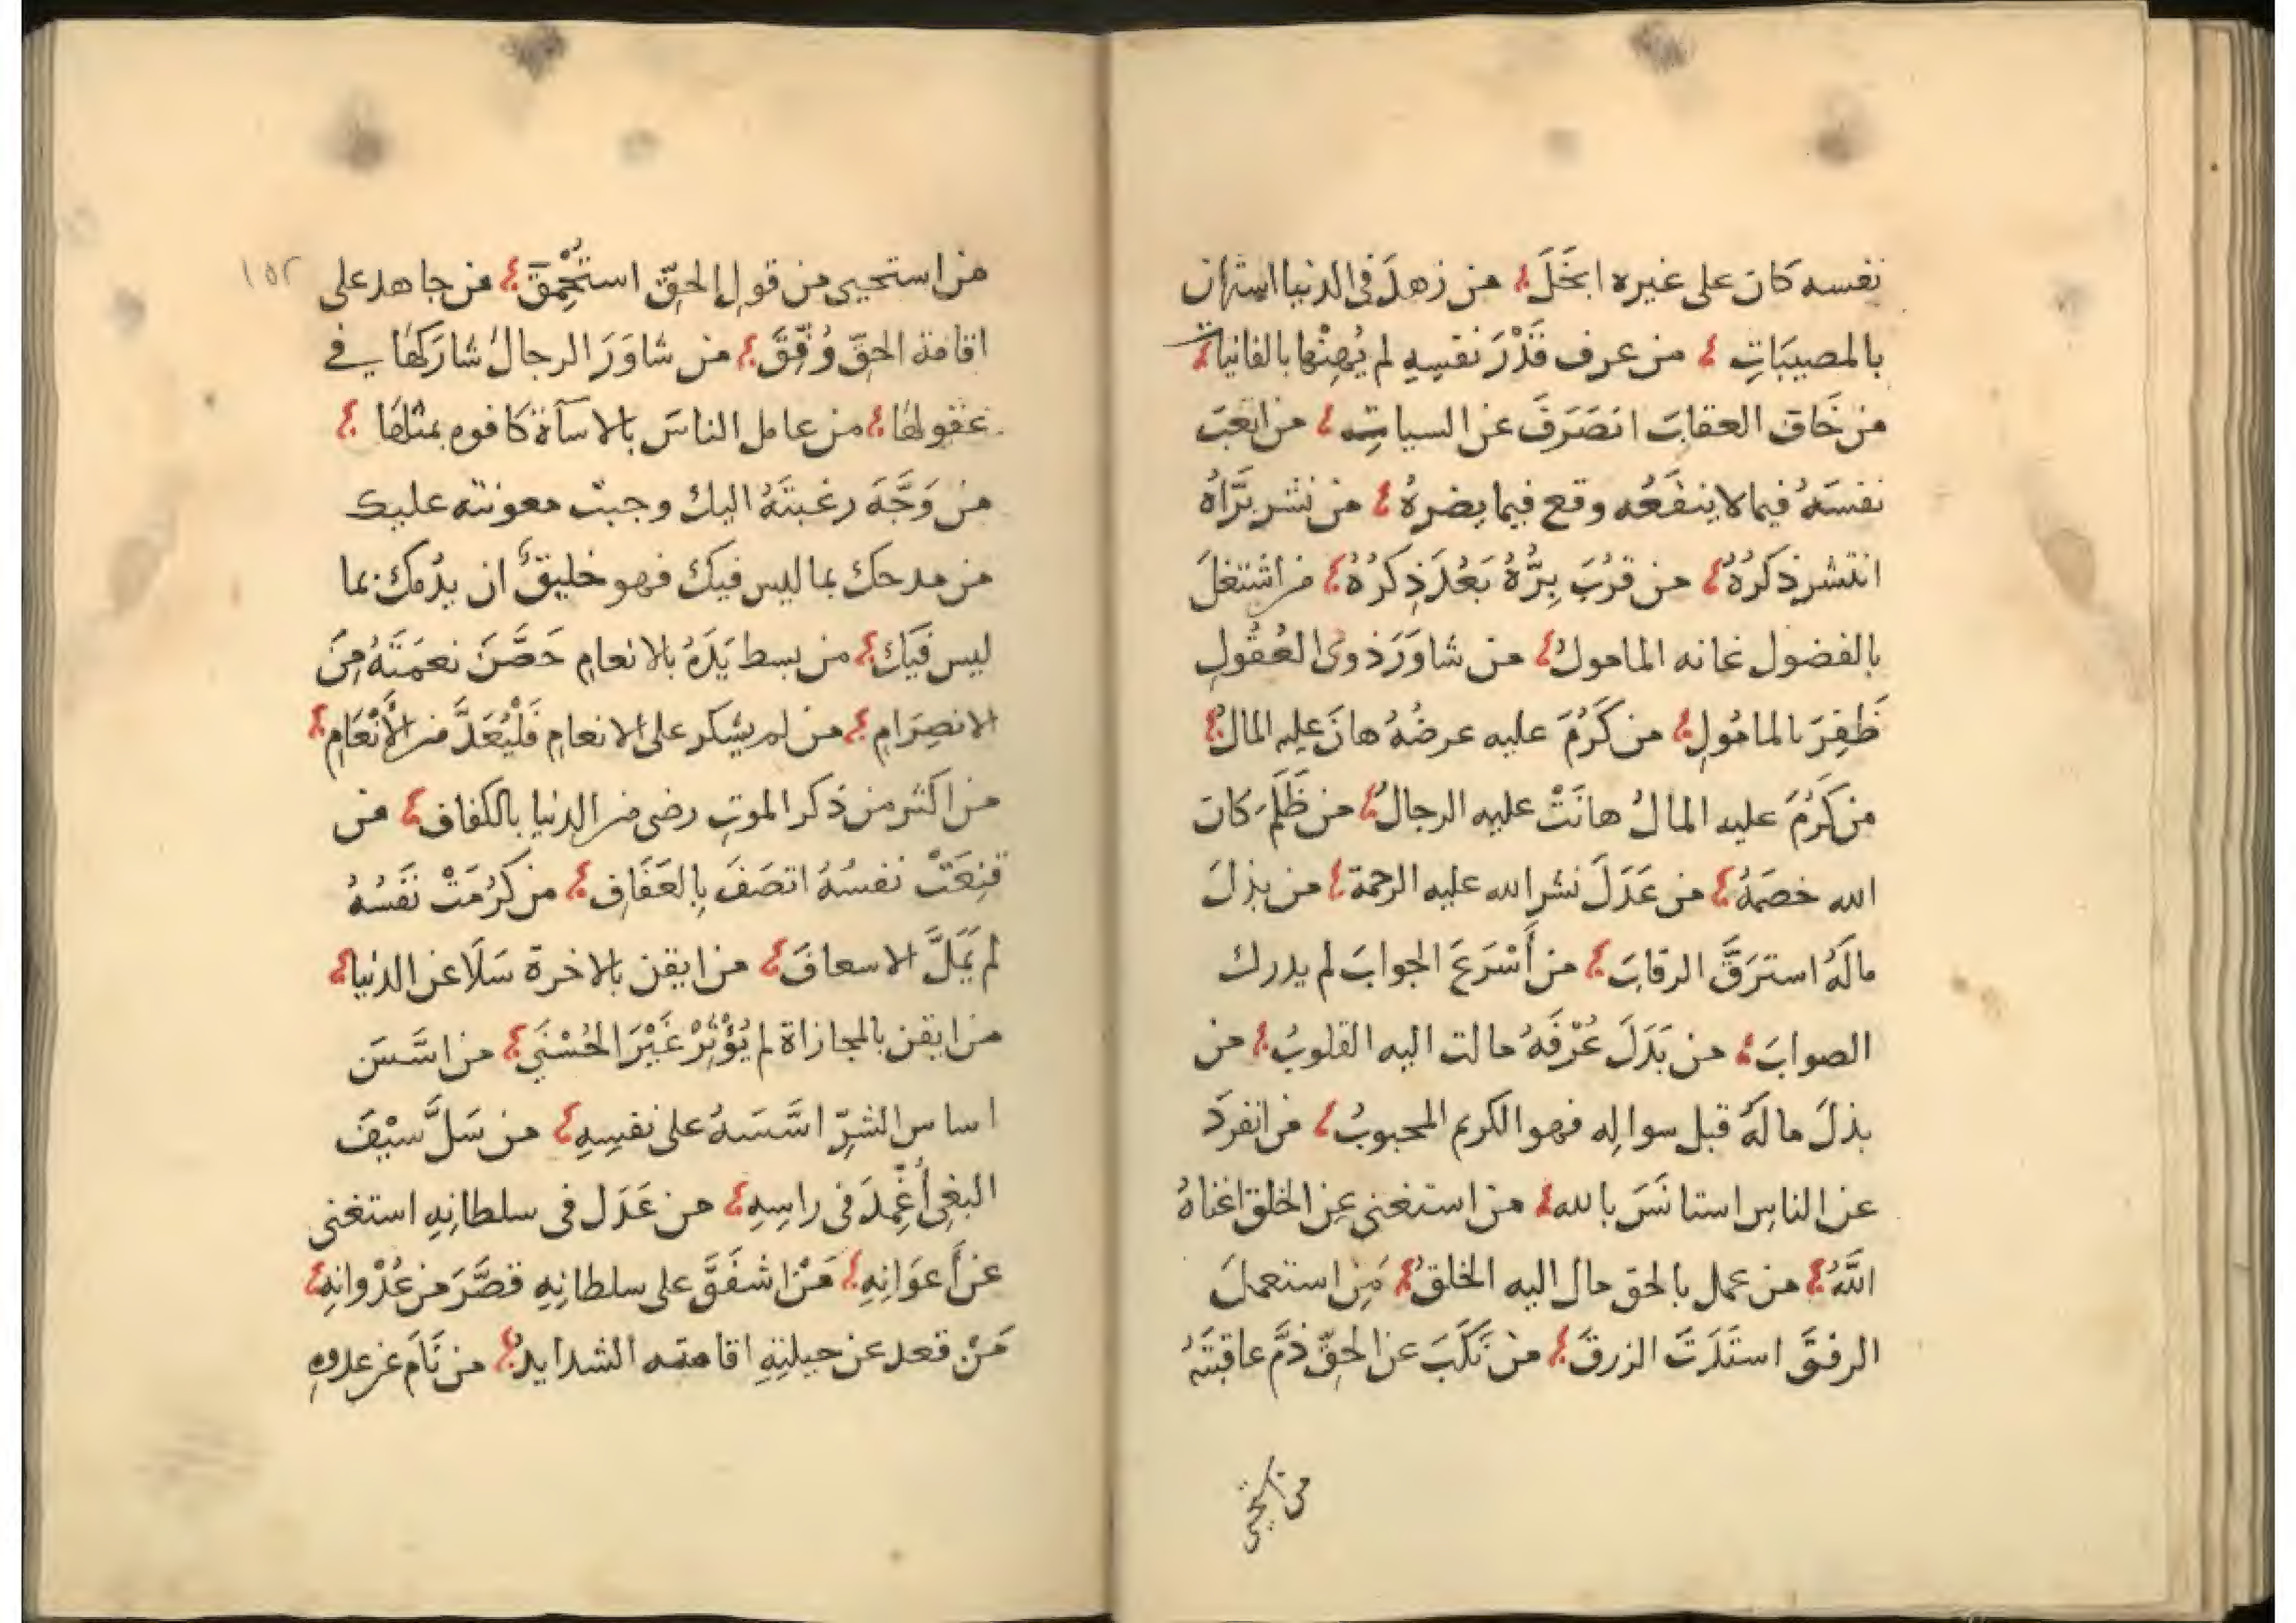 نفسه كان على غيره ابخَلَ ؛ من زهدَ فى الدنيا استهان
بالمصيبَاتِ ؛ من عرف قَدْرَ نفسِهِ لم يُهِنْها بالفانيات ؛
من خَاف العقابَ انصَرَفَ عن السياتِ ؛ من اتعَبَ
نفسَهُ فيما لا ينفَعُه وقع فيما يضرهُ ؛ من نشر برَّاهُ
انتشر ذكرُهُ ؛ من قرُبَ بِرُّهُ بَعُدَ ذِكرُهُ ؛ من اشتغلَ
بالفضول غانه المامولُ ؛ من شاوَرَ ذوى العُقُولِ
ظَفِرَ بالمامُولِ ؛ من كَرُمَ عليه عرضُهُ هانَ عليه المالُ ؛
من كَرُمَ عليه المالُ هانَتْ عليه الرجالُ ؛ من ظَلَمَ كان
الله خصمَهُ ؛ من عَدَلَ نشر الله عليه الرحمة ؛ من بذلَ
مالَهُ استرَقَّ الرقابَ ؛ من أَسْرَعَ الجوابَ لم يدرك
الصوابَ ؛ من بَذَلَ عُرْفَهُ مالت اليه القلوبُ ؛ من
بذلَ مالَهُ قبل سوالِه فهو الكريم المحبوبُ ؛ من انفردَ
عن الناسِ استانَسَ بالله ؛ من استغنى عن الخلق اغناهُ
اللَّهُ ؛ من عمل بالحق مال اليه الخلقُ ؛ مَنِ استعملَ
الرفقَ استَدَرَّ الرزقَ ؛ من نَكَبَ عن الحقِّ ذمَّ عاقبتَهُ
من استحيى
من استحيى من قولِ الحقِّ استُحْمِقَ ؛ من جاهد على ١٥٢
اقامة الحقِّ وُفِّقَ ؛ من شاوَرَ الرجالَ شارَكهَا في
عقولهَا ؛ من عامل الناسَ بالاسآة كافوه بمثلهَا ؛
من وَجَّهَ رغبتَهُ اليك وجبت معونته عليك
من مدحك بما ليس فيكَ فهو خليقٌ ان يذمك بما
ليس فيَك ؛ من بسط يَدَهُ بالانعامِ حَصَّنَ نعمَتَهُ مِنَ
الانصِرَامِ ؛ من لم يشكر على الانعامِ فَلْيُعَدَّ من الأَنْعَامِ ؛
من اكثر من ذكر الموتِ رضى من الدنيا بالكفاف ؛ من
قنِعَتْ نفسُهُ اتصَفَ بِالعَفَافِ ؛ من كرُمَتْ نَفسُهُ
لم يَمَلَّ الاسعافَ ؛ من ايقن بالاخرة سَلَا عن الدنيا ؛
من ايقن بالمجازاة لم يُؤْثِرْ غَيْرَ الحُسْنَي ؛ من اسَّسَ
اساس الشرِّ اسَّسَهُ على نفسِهِ ؛ من سَلَّ سيْفَ
البغىِ أُغْمِدَ فى راسِهِ ؛ من عَدَل فى سلطانِهِ استغنى
عن أَعوَانِهِ ؛ مَنْ اشفَقَ على سلطانِهِ قصَّرَ من عُدْوانِهِ ؛
مَنْ قعد عن حيلتِهِ اقامته الشدايدُ ؛ من نَامَ عن عدوهِ